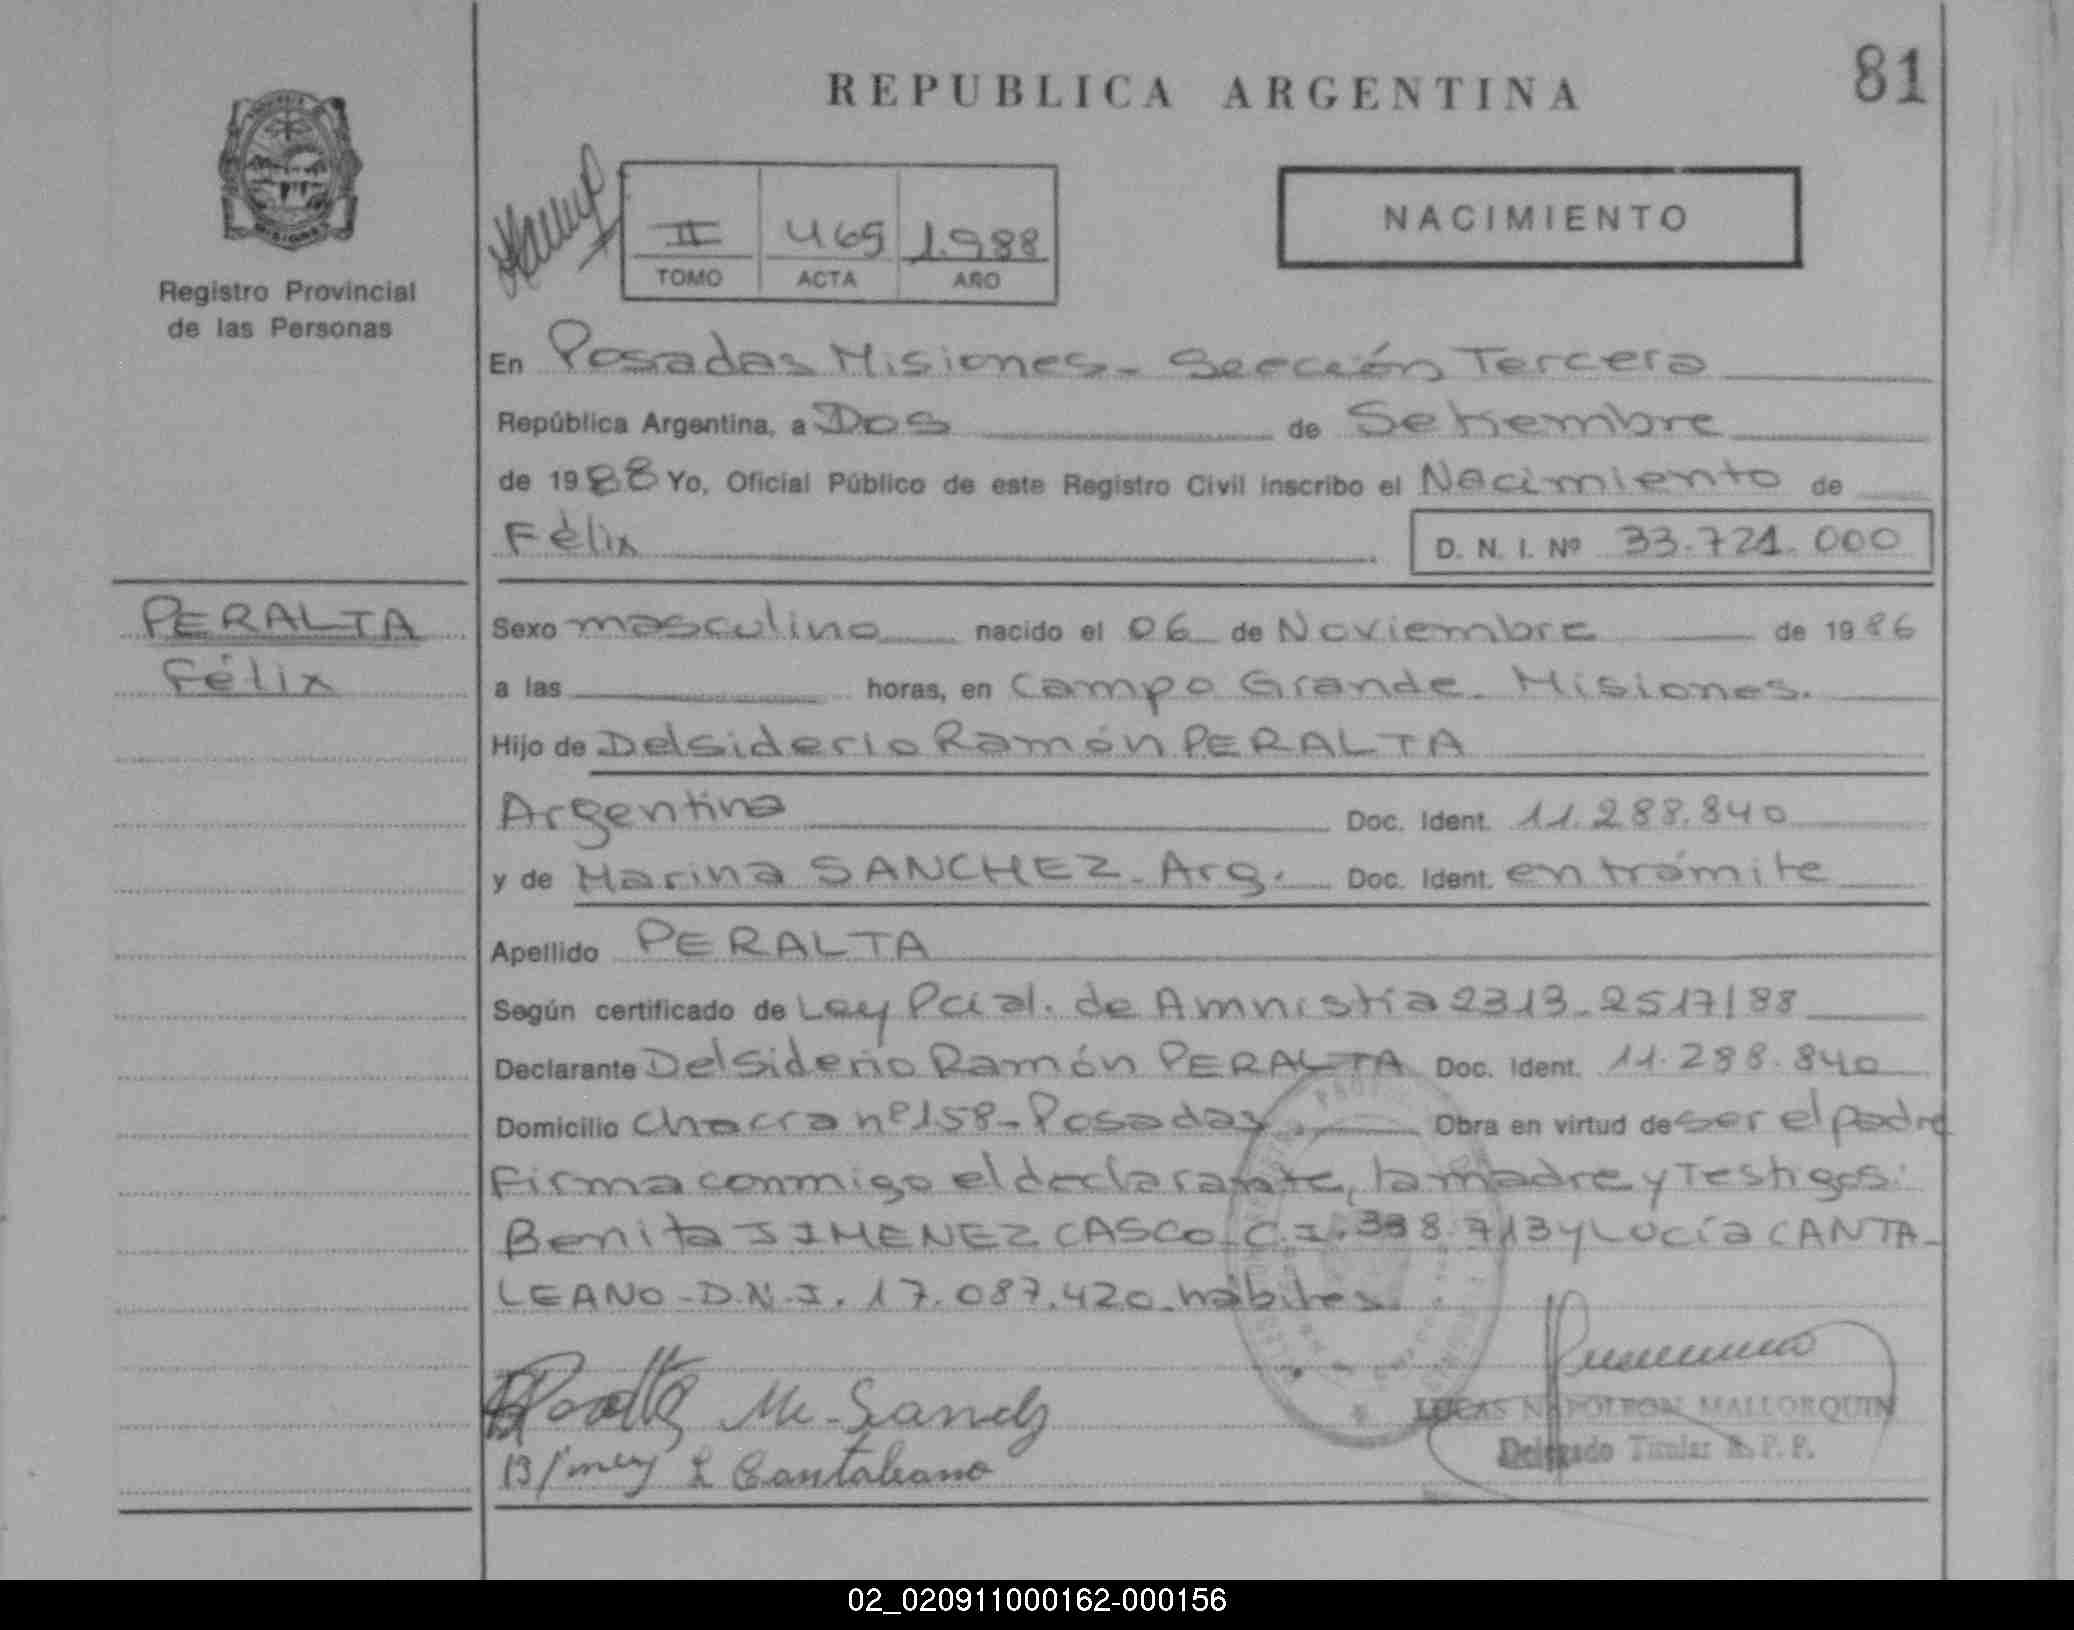 81
REPUBLICA ARGENTINA
NACIMIENTO
II 465 1.988
TOMO ACTA AÑO
Registro Provincial
de las Personas
MISIONES
En Posadas Misiones - Sección Tercera
República Argentina, a Dos de Setiembre
de 1988 Yo, Oficial Público de este Registro Civil inscribo el Nacimiento de
Félix D. N. I. Nº 33.721.000
PERALTA
Félix
Sexo masculino nacido el 06 de Noviembre de 1986
a las horas, en Campo Grande. Misiones.
Hijo de Delsiderio Ramón PERALTA
Argentina Doc. Ident. 11.288.840
y de Marina SANCHEZ - Arg. Doc. Ident. en trámite
Apellido PERALTA
Según certificado de Ley Pcial. de Amnistía 2313-2517/88
Declarante Delsiderio Ramón PERALTA Doc. Ident. 11.288.840
Domicilio Chacra nº 158 - Posadas Obra en virtud de ser el padre
Firma conmigo el declarante, la madre y Testigos:
Benita JIMENEZ CASCO - C.I. 338.713 y Lucía CANTA-
LEANO - D.N.I. 17.087.420 - hábiles.
L Cantaleano
LUCAS NAPOLEON MALLORQUIN
Delegado Titular R. P. P.
02_020911000162-000156